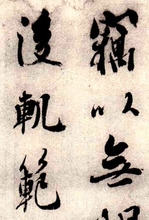 竊以無
後軌範